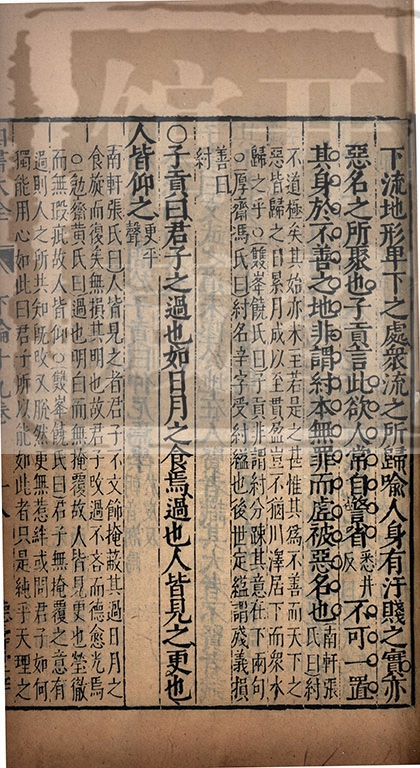 下流地形卑下之處衆流之所歸喻人身有汙賤之實亦
惡名之所聚也子貢言此欲人常自警省悉井反不可一置
其身於不善之地非謂紂本無罪而虛被惡名也南軒張氏曰紂
不道極矣其始亦未王若是之甚惟其爲不善而天下之
惡皆歸之日累月成以至貫盈豈不猶川澤居下而衆水
歸之乎○雙峯饒氏曰子貢非謂紂分踈其意在下兩句
○厚齋馮氏曰紂名辛字受紂縊也後世定縊謂殘義損
善曰
紂
○子貢曰君子之過也如日月之食焉過也人皆見之更也
人皆仰之更平聲
南軒張氏曰人皆見之者君子不文飾掩蔽其過日月之
食旋而復矣無損其明也故君子改過不吝而德愈光焉
○勉齋黃氏曰過也明白而無掩覆故人皆見更也瑩徹
而無瑕疵故人皆仰○雙峯饒氏曰君子無掩覆之意有
過則人之所共知既改又脫然更無惹絆或問君子如何
獨能用心如此曰君子所以能如此者只是純乎天理之
四書大全 下論十九卷